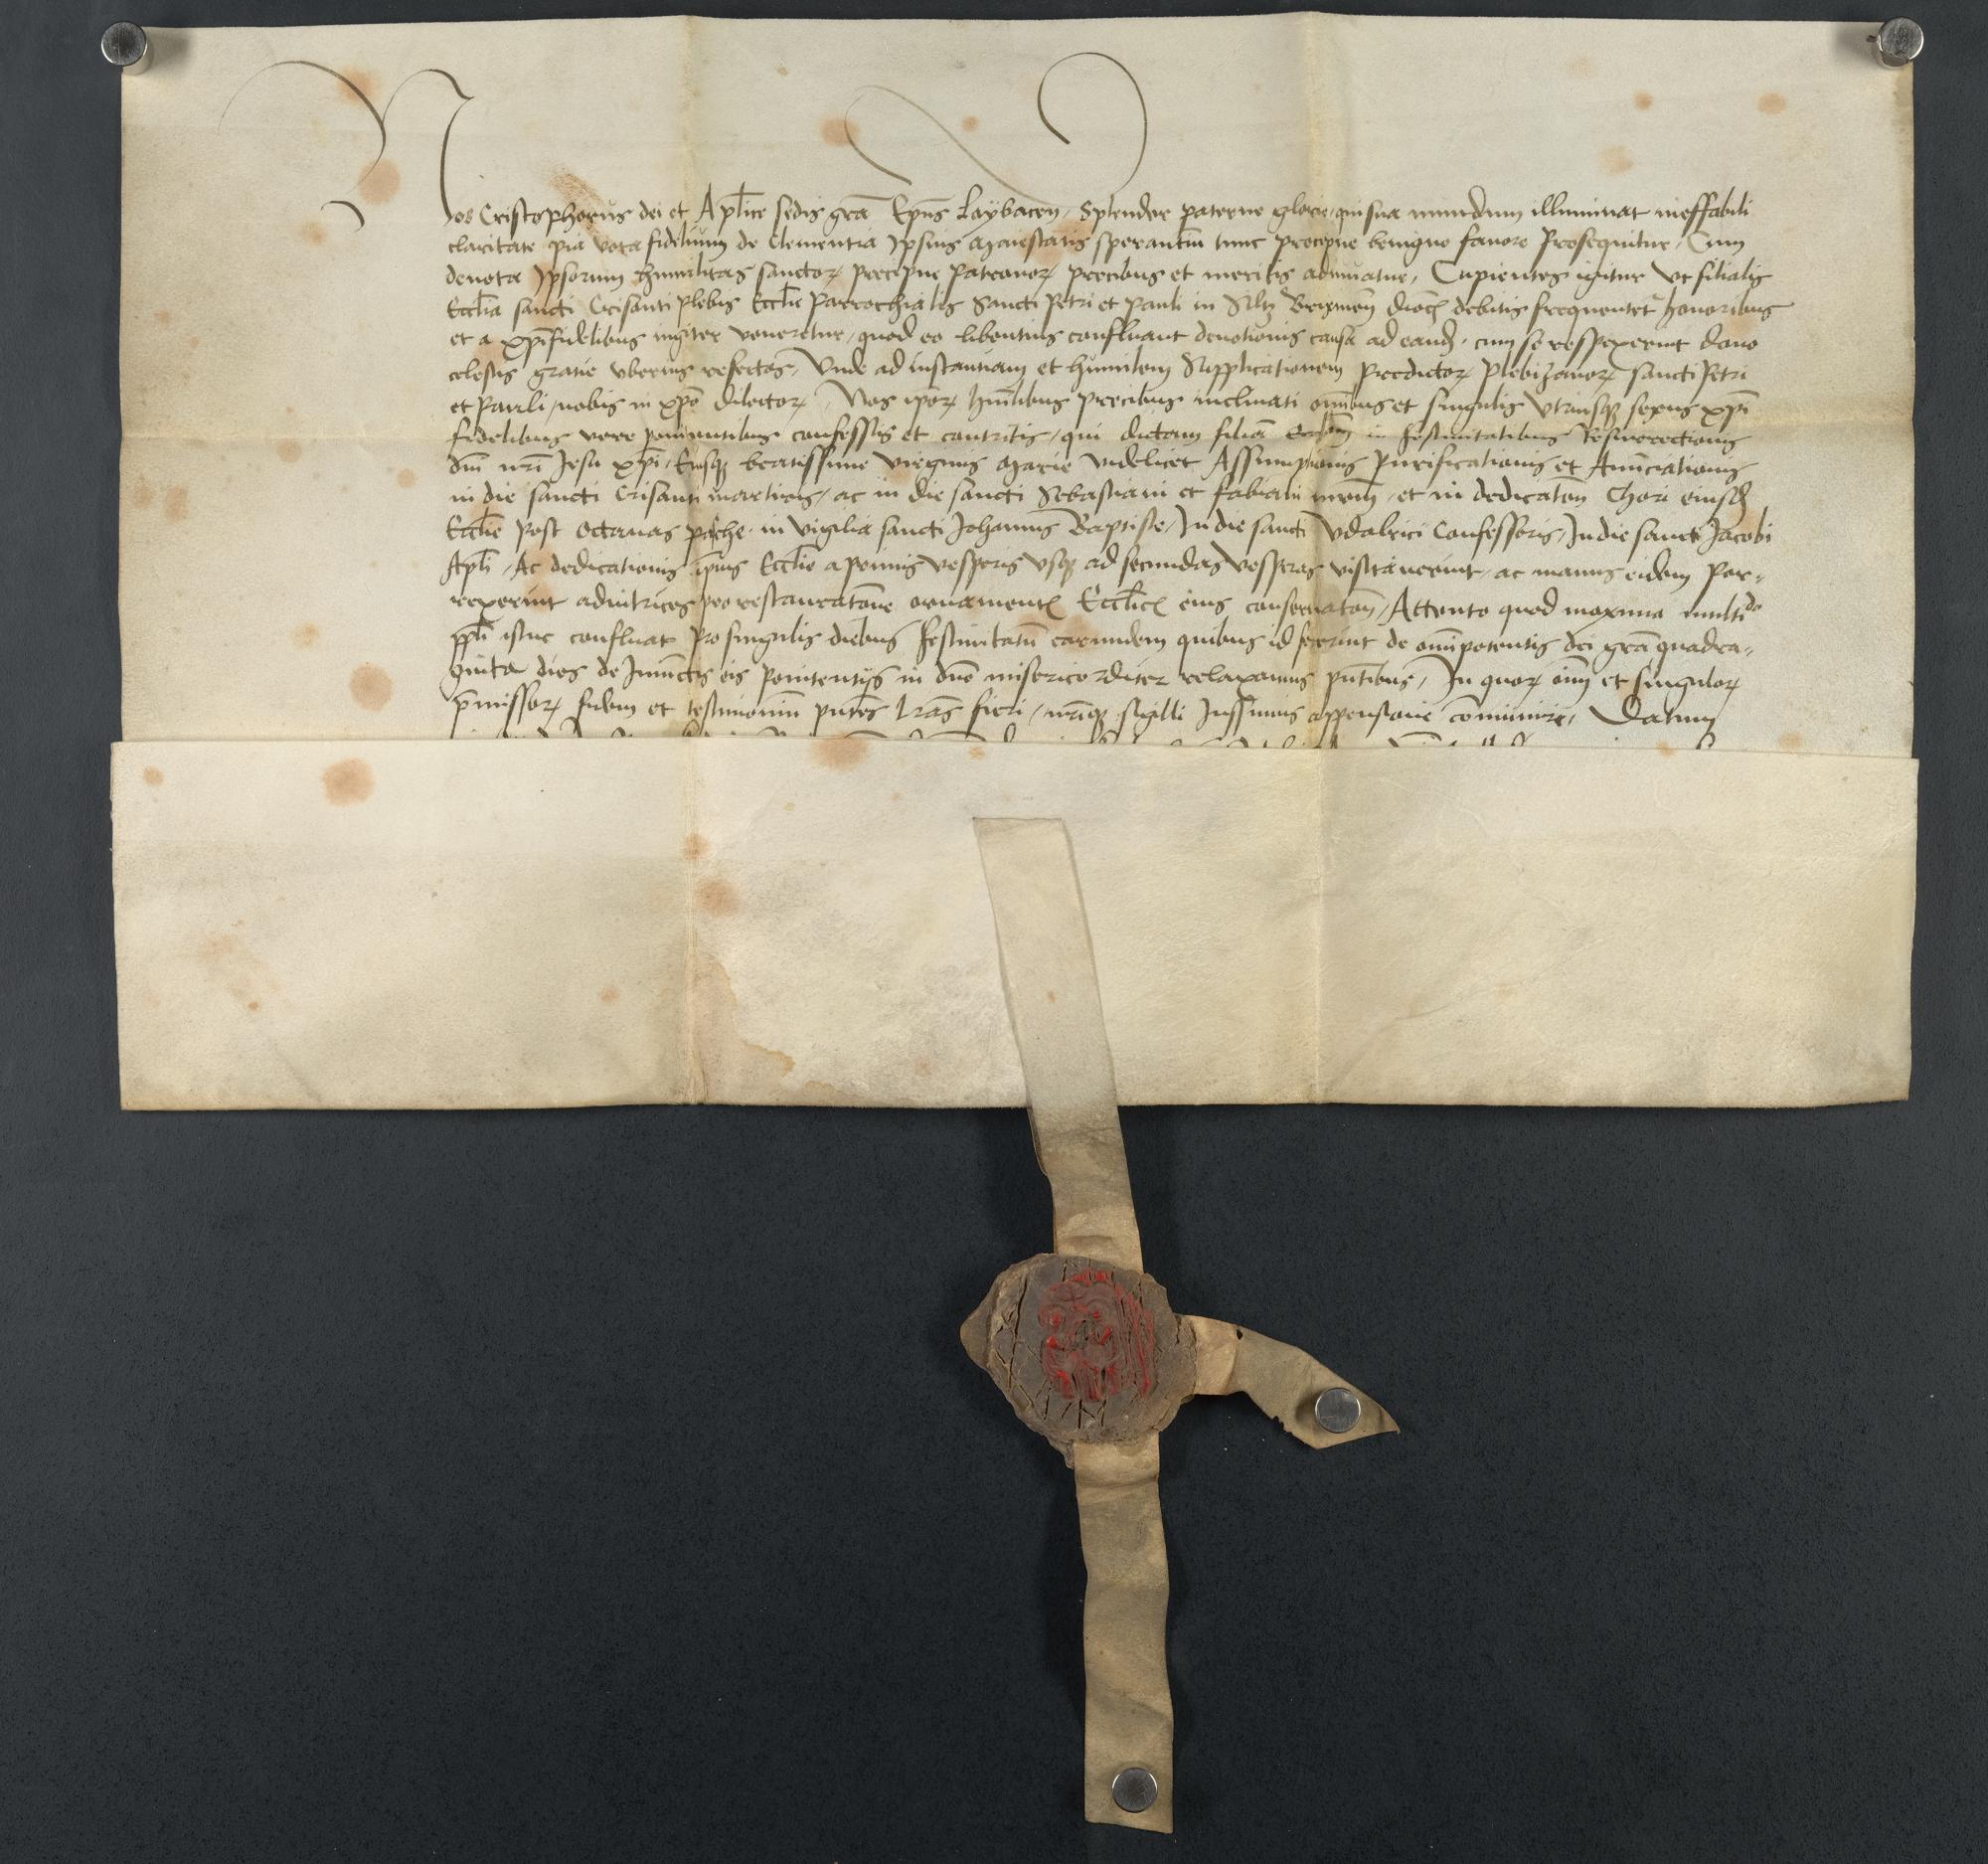 Nos Cristophorus dei et Apl̄ice sedis gr̄a Ep̄us Laybaceñ, Splendor paterne glorie, qui sua mundum illuminat ineffabili
claritate pia vota fidelium de Clementia ipsius Maiestatis sperantiū tunc precipue benigno favore Prosequitur, Cum
devota ipsorum humilitas sanctoꝝ precipue Patronoꝝ precibus et meritis adiuvatur, Cupientes igitur ut filialis
Eccl̄ia sancti Crisanti plebis Eccl̄ie Parrochialis Sancti Petri et Pauli in Brixineñ dioc̄ debitis frequentet̄ honoribus
et a xp̄ifidelibus iugiter veneretur, quod eo libentius confluant devotionis causa ad eand̄, cum se respexerint dono
celestis gratie uberius refectos, Unde ad instantiam et humilem Supplicationem Predictoꝝ plebizanoꝝ sancti Petri
et Pauli, nobis in xp̄o dilectoꝝ, Nos ip̄oꝝ humilibus precibus inclinati om̄ibus et singulis utriusqꝫ sexus xp̄i
fidelibus vere penitentibus confessis et contritis, qui dictam filiā eccl̄iam in festivitatibus Resurrectionis
dn̄i nr̄i Jesu xp̄i, Eiusqꝫ beatissime virginis Marie videlicet Assumptionis Purificationis et Anūciationis
in die sancti Crisanti martiris, ac in die sancti Sebastiani et fabiani mr̄om̄, et in dedicatōn Chori eiusd̄
Eccl̄ie post octavas pasche, in vigilia sancti Johannis Baptiste, In die sancti Udalrici Confessoris, In die sancti Jacobi
Apl̄i, Ac dedicationis ip̄ius Eccl̄ie a primis vesperis usqꝫ ad secundas vesperas visitaverint, ac manus eidem Por-
rexerint adiutrices pro restauratōne ornamentꝫ Eccl̄icꝫ eius conservatōn, Attento quod maxima multido
pp̄li istuc confluat Pro singulis diebus festivitatū earumdem quibus id fecerint de om̄ipotentis dei gr̄a quadra-
ginta dies de Iniunctis eis penitentijs in dn̄o misericorditer relaxamus pn̄tibus, In quoꝝ om̄i et singuloꝝ
p̄missoꝝ fidem et testimoniū pn̄tes lr̄as fieri, nr̄iqꝫ sigilli Iussimus appensione com̄uniri, Datum